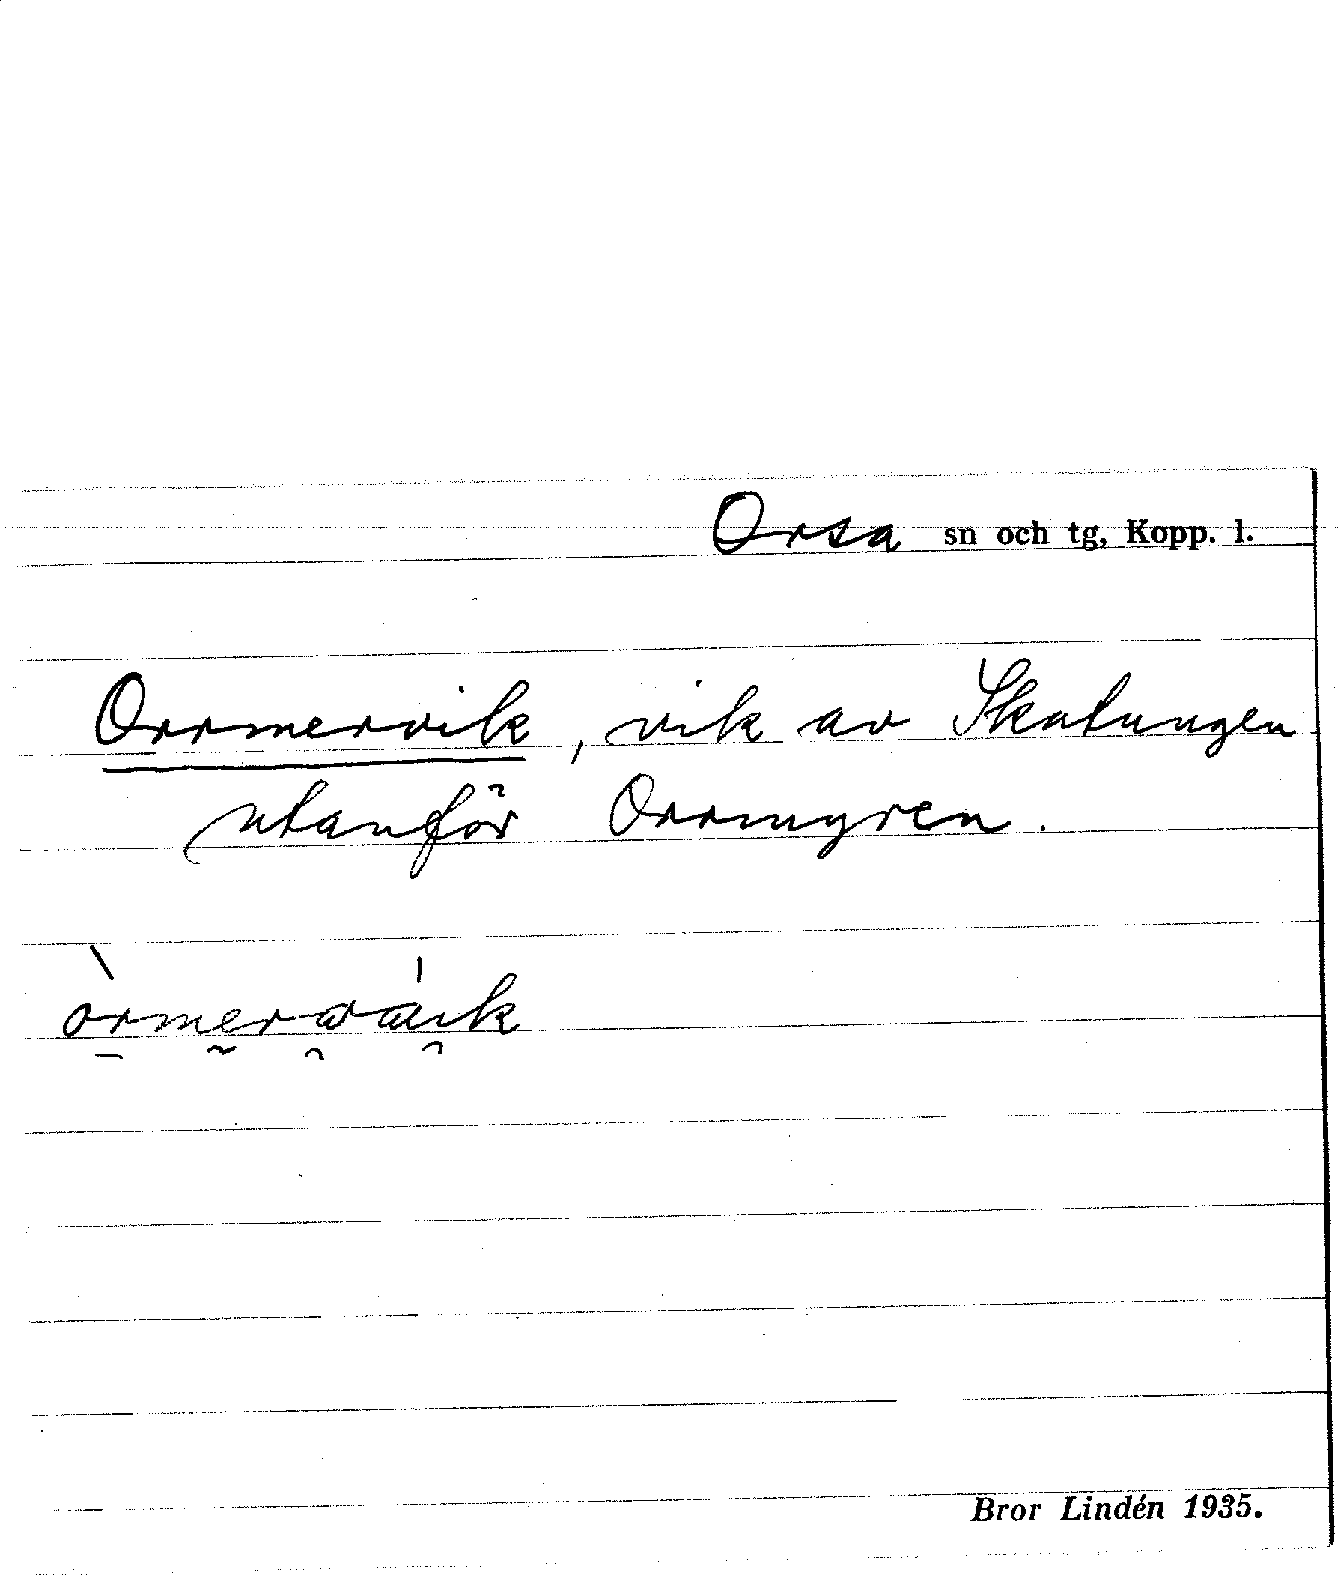 Orsa sn och tg, Kopp. l.
Orrmervik, vik av Skatungen
utanför Orrmyren.
Bror Lindén 1935.